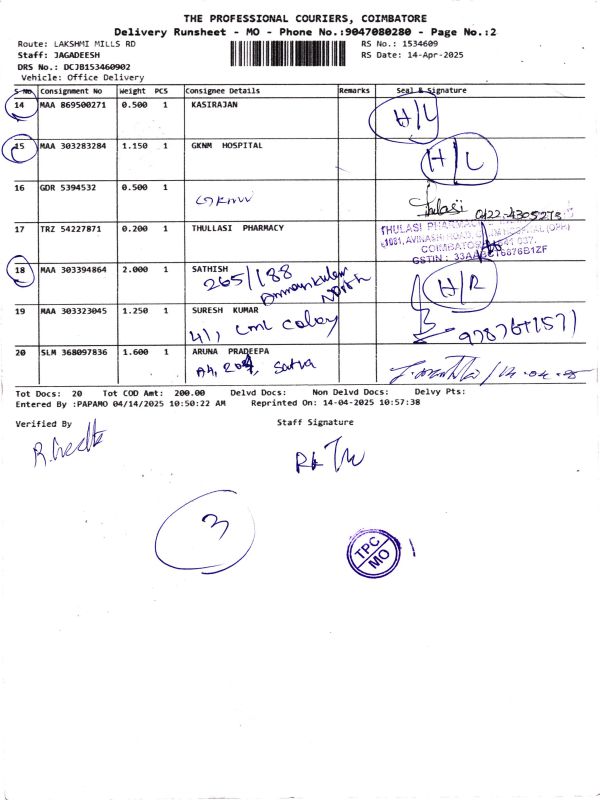 THE PROFESSIONAL COURIERS, COIMBATORE
Delivery Runsheet - MO - Phone No.:9047080280 - Page No.:2
Route: LAKSHMI MILLS RD RS No.: 1534609
Staff: JAGADEESH RS Date: 14-Apr-2025
DRS No.: DCJB153460902
Vehicle: Office Delivery
S No Consignment No Weight PCS Consignee Details Remarks Seal & Signature
14 MAA 869500271 0.500 1 KASIRAJAN
H/L
15 MAA 303283284 1.150 1 GKNM HOSPITAL
H/L
16 GDR 5394532 0.500 1
GKNM
Thulasi 0422-4305273
17 TRZ 54227871 0.200 1 THULLASI PHARMACY
THULASI PHARMAC
1081, AVINASHI ROAD,
COIMBATO 641 037.
GSTIN : 33AA
18 MAA 303394864 2.000 1 SATHISH
265/188
Ammankulam
North
H/R
19 MAA 303323045 1.250 1 SURESH KUMAR
41, Lml colony
20 SLM 368097836 1.600 1 ARUNA PRADEEPA
A4, 204, Satva
14.04.25
Tot Docs: 20 Tot COD Amt: 200.00 Delvd Docs: Non Delvd Docs: Delvy Pts:
Entered By :PAPAMO 04/14/2025 10:50:22 AM Reprinted On: 14-04-2025 10:57:38
Verified By Staff Signature
3
TPC
MO